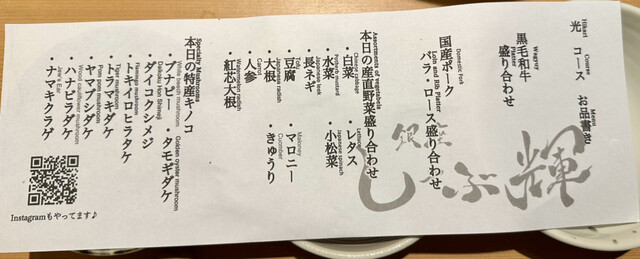 Hikari Course Menu
光 コース お品書き
Wagyu
黒毛和牛
Platter
盛り合わせ
Domestic Pork
国産ポーク
Loin and Rib Platter
バラ・ロース盛り合わせ
Assortments of vegetables
本日の産直野菜盛り合わせ
Chinese cabbage Lettuce
・白菜 ・レタス
Potherb mustard Japanese spinach
・水菜 ・小松菜
Japanese leek
・長ネギ
Tofu Malony
・豆腐 ・マロニー
Japanese radish Cucumber
・大根 ・きゅうり
Carrot
・人参
Watermelon radish
・紅芯大根
Specialty Mushrooms
本日の特産キノコ
White peach mushroom Golden oyster mushroom
・アナビー ・タモギダケ
Daikoku Hon Shimeji
・ダイコクシメジ
・トキイロヒラタケ
Tiger mushroom
・ムラマキダケ
Pom pom mushroom
・ヤマブシダケ
Wood cauliflower mushroom
・ハナビラダケ
Jew's Ear
・ナマキクラゲ
Instagramもやってます♪
銀座
しゃぶ輝